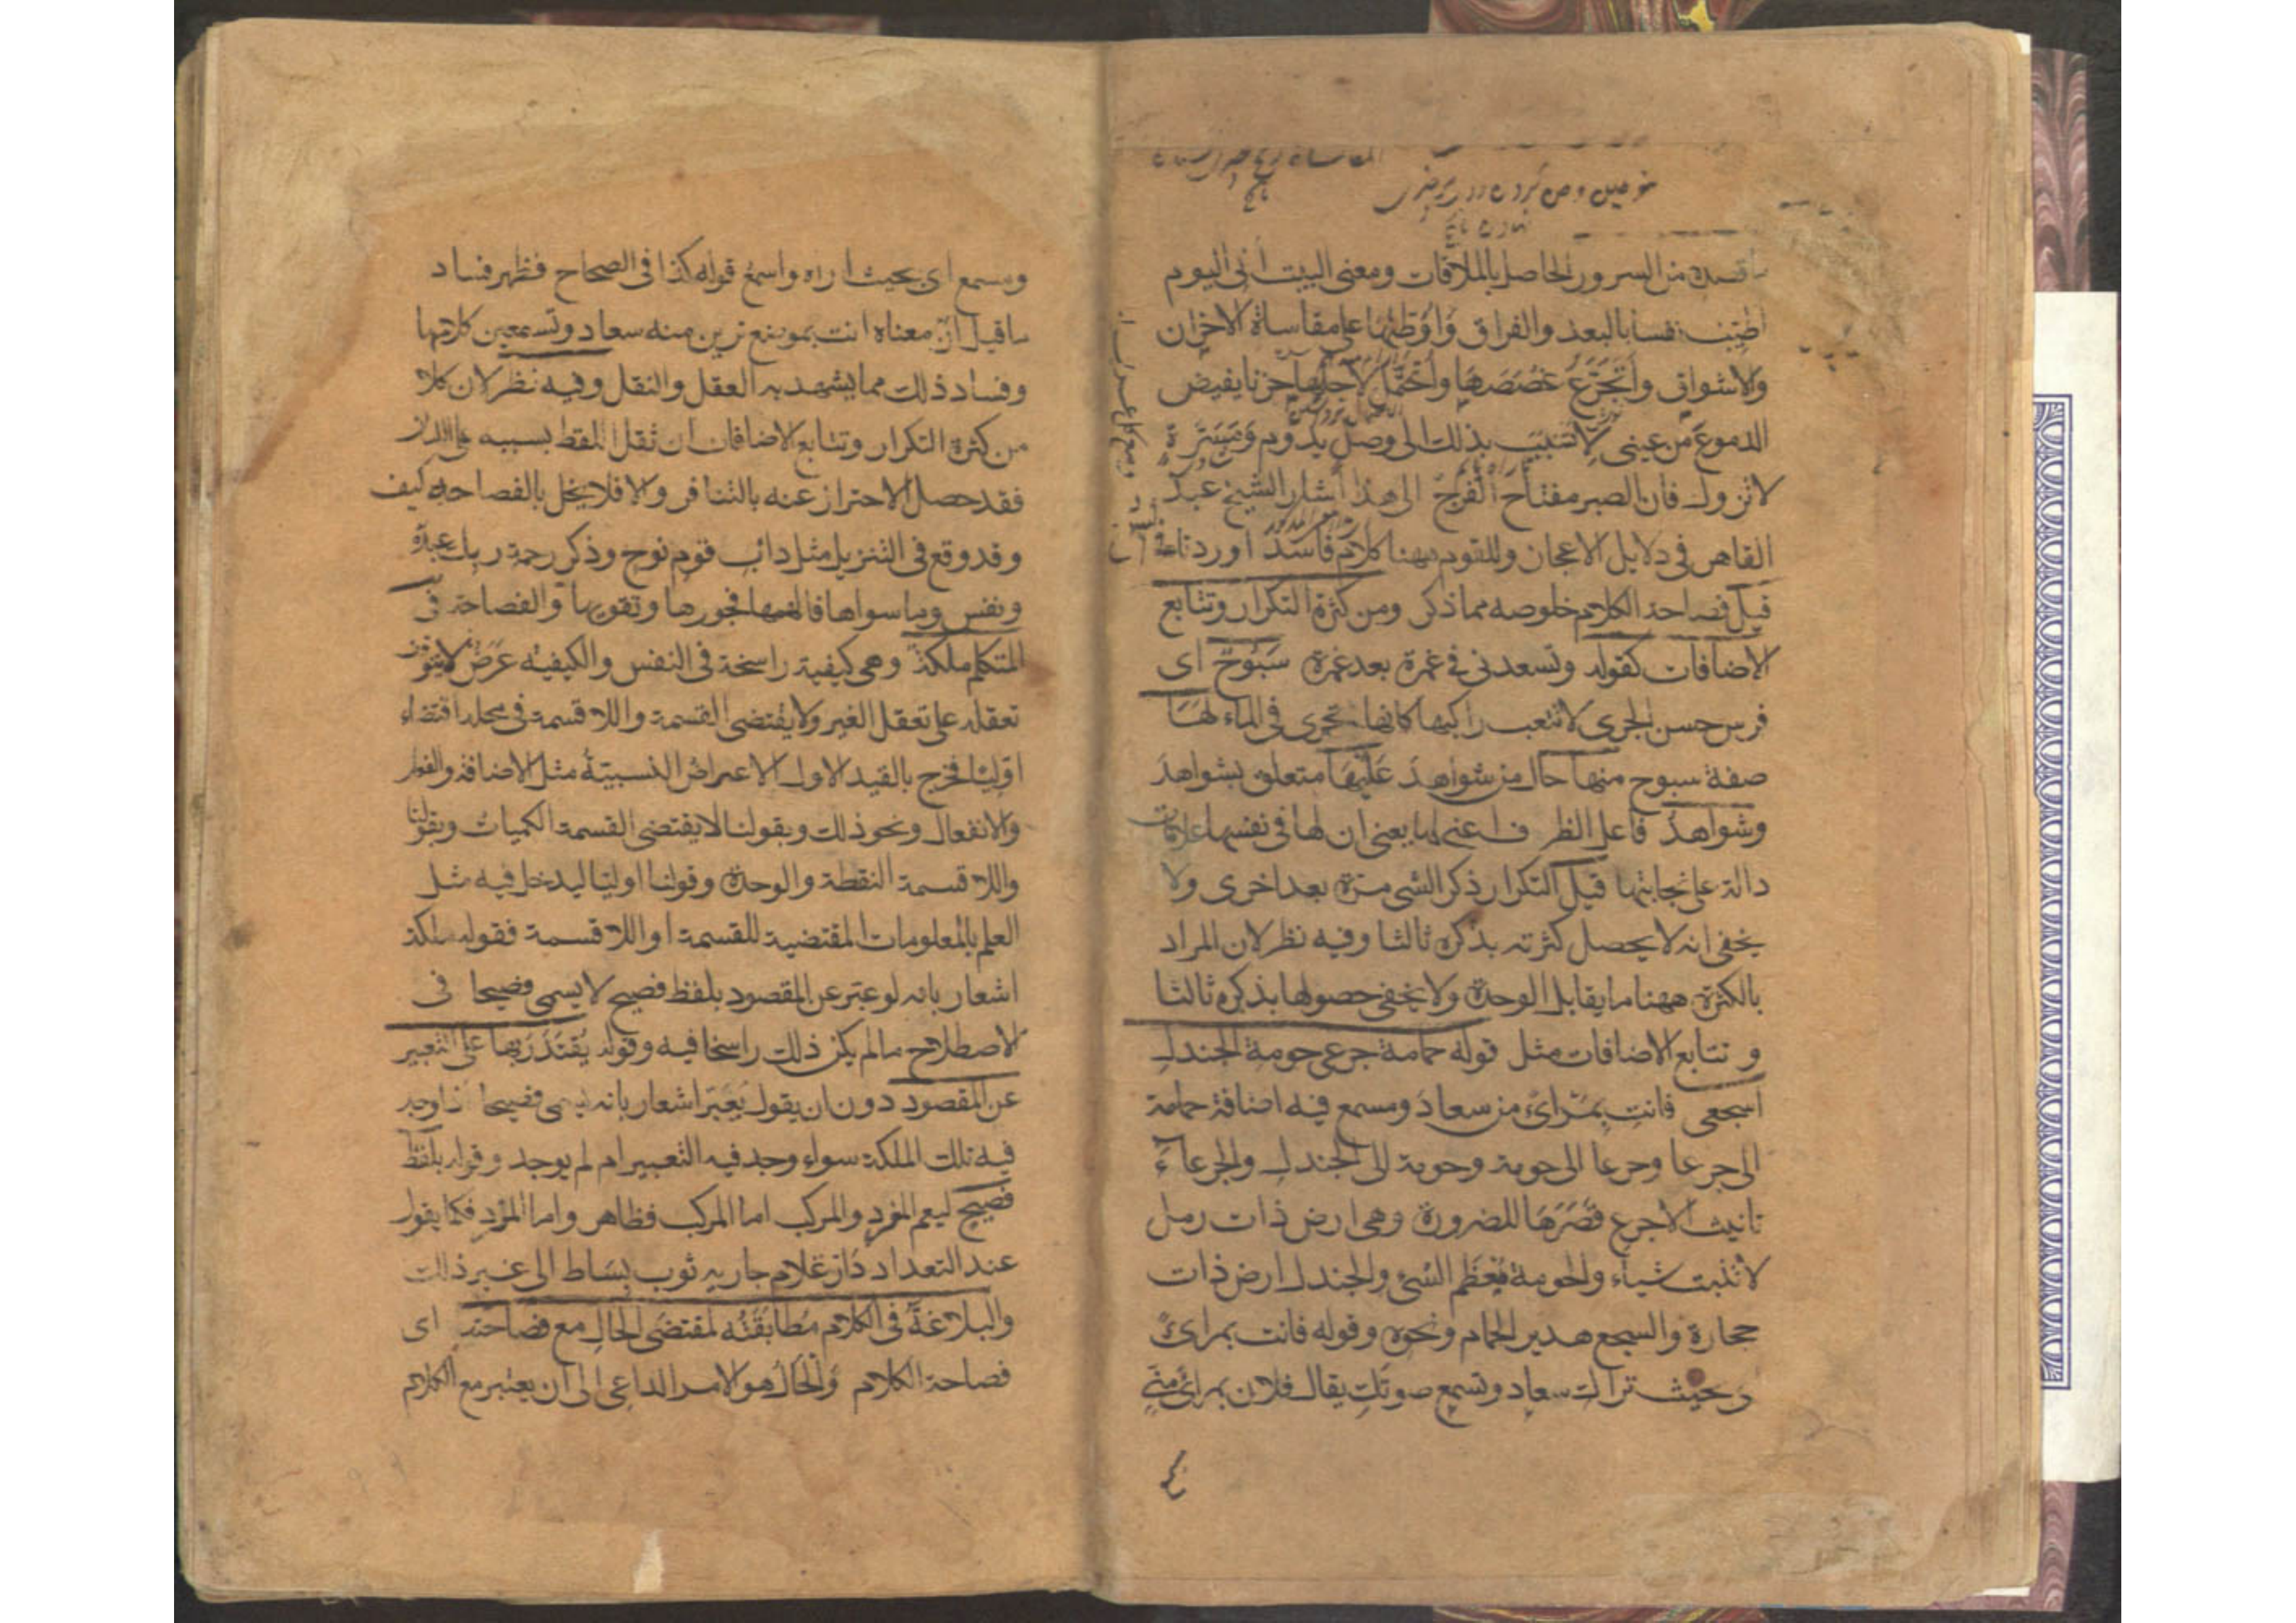 قصده من السرور الحاصل بالملاقات ومعنى البيت انى اليوم
اطيب نفسا بالبعد والفراق واوطنها على مقاساة الاحزان
والاشواق وأتجرع غصصها وأتحمل لاجلها حزنا يفيض
الدموع من عينى لاتسبب بذلك الى وصل يدوم ومسرة
لاتزول فان الصبر مفتاح الفرج الى هذا أشار الشيخ عبد
القاهر فى دلايل الاعجاز وللقوم ههنا كلام فاسد اوردناه فى
قيل فصاحة الكلام خلوصه مما ذكر ومن كثرة التكرار وتتابع
الاضافات كقوله وتسعدنى فى غمرة بعد غمرة سبوح اى
فرس حسن الجرى لاتتعب راكبها كانها تجرى فى الماء لها
صفة سبوح منها حال من شواهد عليها متعلق بشواهد
وشواهد فاعل الظرف اعنى لها يعنى ان لها فى نفسها علامات
دالة على نجابتها قيل التكرار ذكر الشى مرة بعد اخرى ولا
يخفى انه لا يحصل كثرته بذكره ثالثا وفيه نظر لان المراد
بالكثرة ههنا ما يقابل الوحدة ولا يخفى حصولها بذكره ثالثا
و تتابع الاضافات مثل قوله حمامة جرعى حومة الجندل
اسجعى فانت بمرائ من سعاد ومسمع فيه اضافة حمامة
الى جرعا وجرعا الى حومة وحومة الى الجندل والجرعاء
تانيث الاجرع قصرها للضرورة وهى ارض ذات رمل
لاتنبت شياء والحومة معظم الشئ والجندل ارض ذات
حجارة والسجع هدير الحمام ونحوه وقوله فانت بمرائ
بحيث تراك سعاد وتسمع صوتك يقال فلان بمرائ منى
ومسمع اى بحيث اراه واسمع قوله كذا فى الصحاح فظهر فساد
ما قيل ان معناه انت بموضع ترين منه سعاد وتسمعين كلامها
وفساد ذلك مما يشهد به العقل والنقل وفيه نظر لان كلا
من كثرة التكرار وتتابع الاضافات ان ثقل اللفظ بسببه على اللسان
فقد حصل الاحتراز عنه بالتنافر والا فلا يخل بالفصاحة كيف
وقد وقع فى التنزيل مثل دائب قوم نوح وذكر رحمة ربك عبده
ونفس وما سواها فالهمها فجورها وتقويها والفصاحة فى
المتكلم ملكة وهى كيفية راسخة فى النفس والكيفية عرض لايتوقف
تعقله على تعقل الغير ولا يقتضى القسمة واللا قسمة فى محله اقتضاء
اوليا فخرج بالقيد الاول الاعراض النسبية مثل الاضافة والفعل
والانفعال ونحو ذلك وبقولنا لا يقتضى القسمة الكميات وبقولنا
واللا قسمة النقطة والوحدة وقولنا اوليا ليدخل فيه مثل
العلم بالمعلومات المقتضية للقسمة او اللا قسمة فقوله ملكة
اشعار بانه لو عبر عن المقصود بلفظ فصيح لا يسمى فصيحا فى
الاصطلاح مالم يكن ذلك راسخا فيه وقوله يقتدر بها على التعبير
عن المقصود دون ان يقول يعبر اشعار بانه يسمى فصيحا اذا وجد
فيه تلك الملكة سواء وجد فيه التعبير ام لم يوجد وقوله بلفظ
فصيح ليعم المفرد والمركب اما المركب فظاهر واما المفرد فكما يقول
عند التعداد دار غلام جاريه ثوب بساط الى غير ذلك
والبلاغة فى الكلام مطابقته لمقتضى الحال مع فصاحته اى
فصاحة الكلام والحال هو الامر الداعى الى ان يعتبر مع الكلام